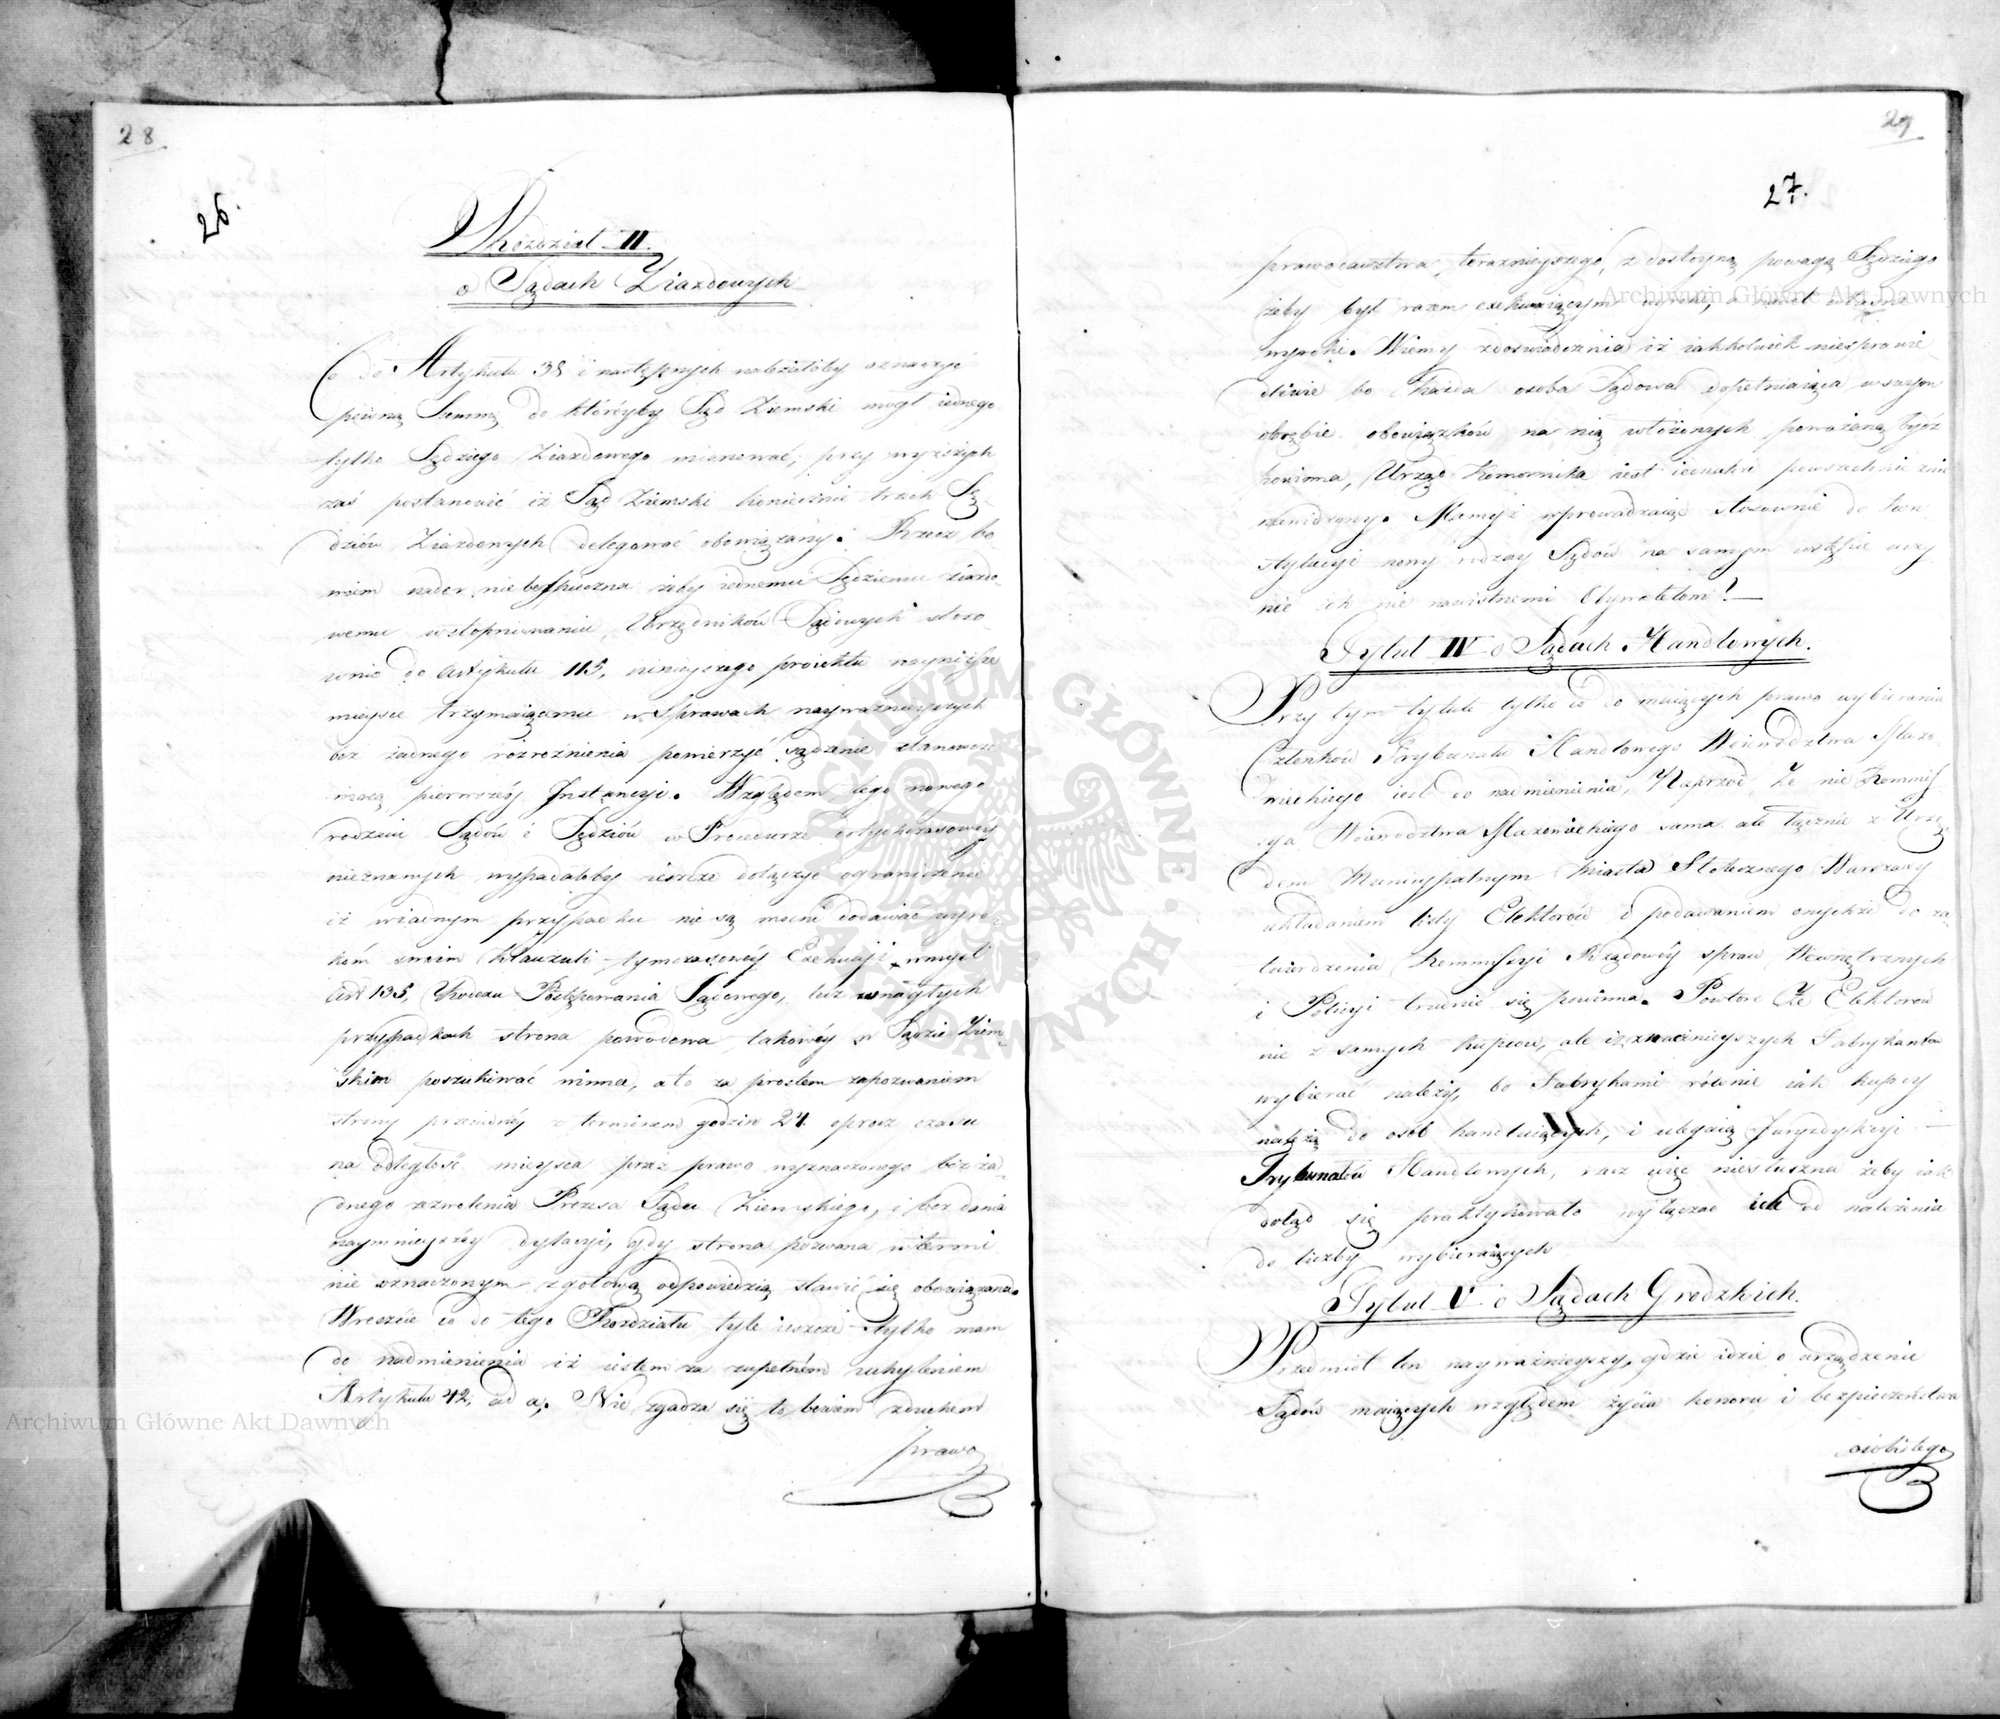 28
26.
Rozdział II.
o Sądach Ziazdowych
Co do Artykułu 38 i następnych należałoby oznaczyć
pewną Summę do któréyby Sąd Ziemski mógł iednego
tylko Sędziego Ziazdowego mianować, przy wyższych
zaś postanowić iż Sąd Ziemski koniecznie trzech Sę-
dziów Ziazdowych delegować obowiązany. Rzecz bo
wiem nader niebespieczna żeby iednemu Sędziemu ziazdo-
wemu w stopniowaniu Urzędników Sądowych stoso-
wnie do Artykułu 115, ninieyszego proiektu nayniższe
mieysce trzymaiącemu w Sprawach nayważnieyszych
bez żadnego rozróżnienia powierzyć sądzenie stanowcze
mocą pierwszéy Instancyi. Względem tego nowego
rodzaiu Sądów i Sędziów w Procedurze dotychczasowéy
nieznanych wypadałoby ieszcze dołączyć ograniczenie
iż w żadnym przypadku nie są mocni dodawać wyro-
kom swoim Klauzuli tymczasowéy Exekucyi w myśl
Art 135, Kodexu Postępowania Sądowego, lecz w nagłych
przypadkach strona powodowa takowéy w Sądzie Ziem-
skim poszukiwać winna, a to za prostem zapozwaniem
strony przeciwnéy z terminem godzin 24 oprocz czasu
na odległość mieysca przez prawo wyznaczonego bez ża-
dnego zezwolenia Prezesa Sądu Ziemskiego, i bez dania
naymnieyszéy dylacyi, gdy strona pozwana w termi
nie oznaczonym z gotową odpowiedzią stawić się obowiązana.
Wreszcie co do tego Rozdziału tyle ieszcze tylko mam
do nadmienienia iż iestem za zupełném uchyleniem
Artykułu 42, ad a. Nie zgadza się to bowiem z duchem
prawo
29
27.
prawodawstwa teraznieyszego, z dostoyną powagą Sędziego
żeby był razem exekwuiącym
wyroki. Wiemy z doświadczenia iż iakkolwiek niesprawie
dliwie bo każda osoba Sądowa dopełniaiąca w swoym
obrębie obowiązków na nią włożonych poważaną bydź
powinna, Urząd Komornika iest iednakże powszechnie znie
nawidzony. Mamyż wprowadzaiąc stosownie do Kon
stytucyi nowy rodzay Sądów na samym wstępie uczy
nić ich nienawistnemi Obywatelom! —
Tytuł IV o Sądach Handlowych.
Przy tym tytule tylko co do maiących prawo wybierania
Członków Trybunału Handlowego Woiewództwa Mazo
wieckiego iest do nadmienienia, Naprzód, Że nie Kommis
sya Woiewództwa Mazowieckiego sama ale łącznie z Urzę
dem Municypalnym Miasta Stołecznego Warszawy
układaniem listy Elektorów i podawaniem onychże do za
twierdzenia Kommissyi Rządowéy spraw Wewnętrznych
i Policyi trudnić się powinna. Powtore Że Elektorów
nie z samych kupców, ale i z znacznieyszych Fabrykantów
wybierać należy, bo Fabrykanci równie iak kupcy
należą do osób handluiących, i ulegaią Juryzdykcyi —
Trybunałów Handlowych, rzecz więc niesłuszna żeby iak
dotąd się praktykowało wyłączać ich od należenia
do liczby wybieraiących
Tytuł V o Sądach Grodzkich.
Przedmiot ten nayważnieyszy, gdzie idzie o urządzenie
Sądów maiących względem życia honoru i bezpieczeństwa
osobistego
Archiwum Główne Akt Dawnych
Archiwum Główne Akt Dawnych
ARCHIWUM GŁÓWNE AKT DAWNYCH